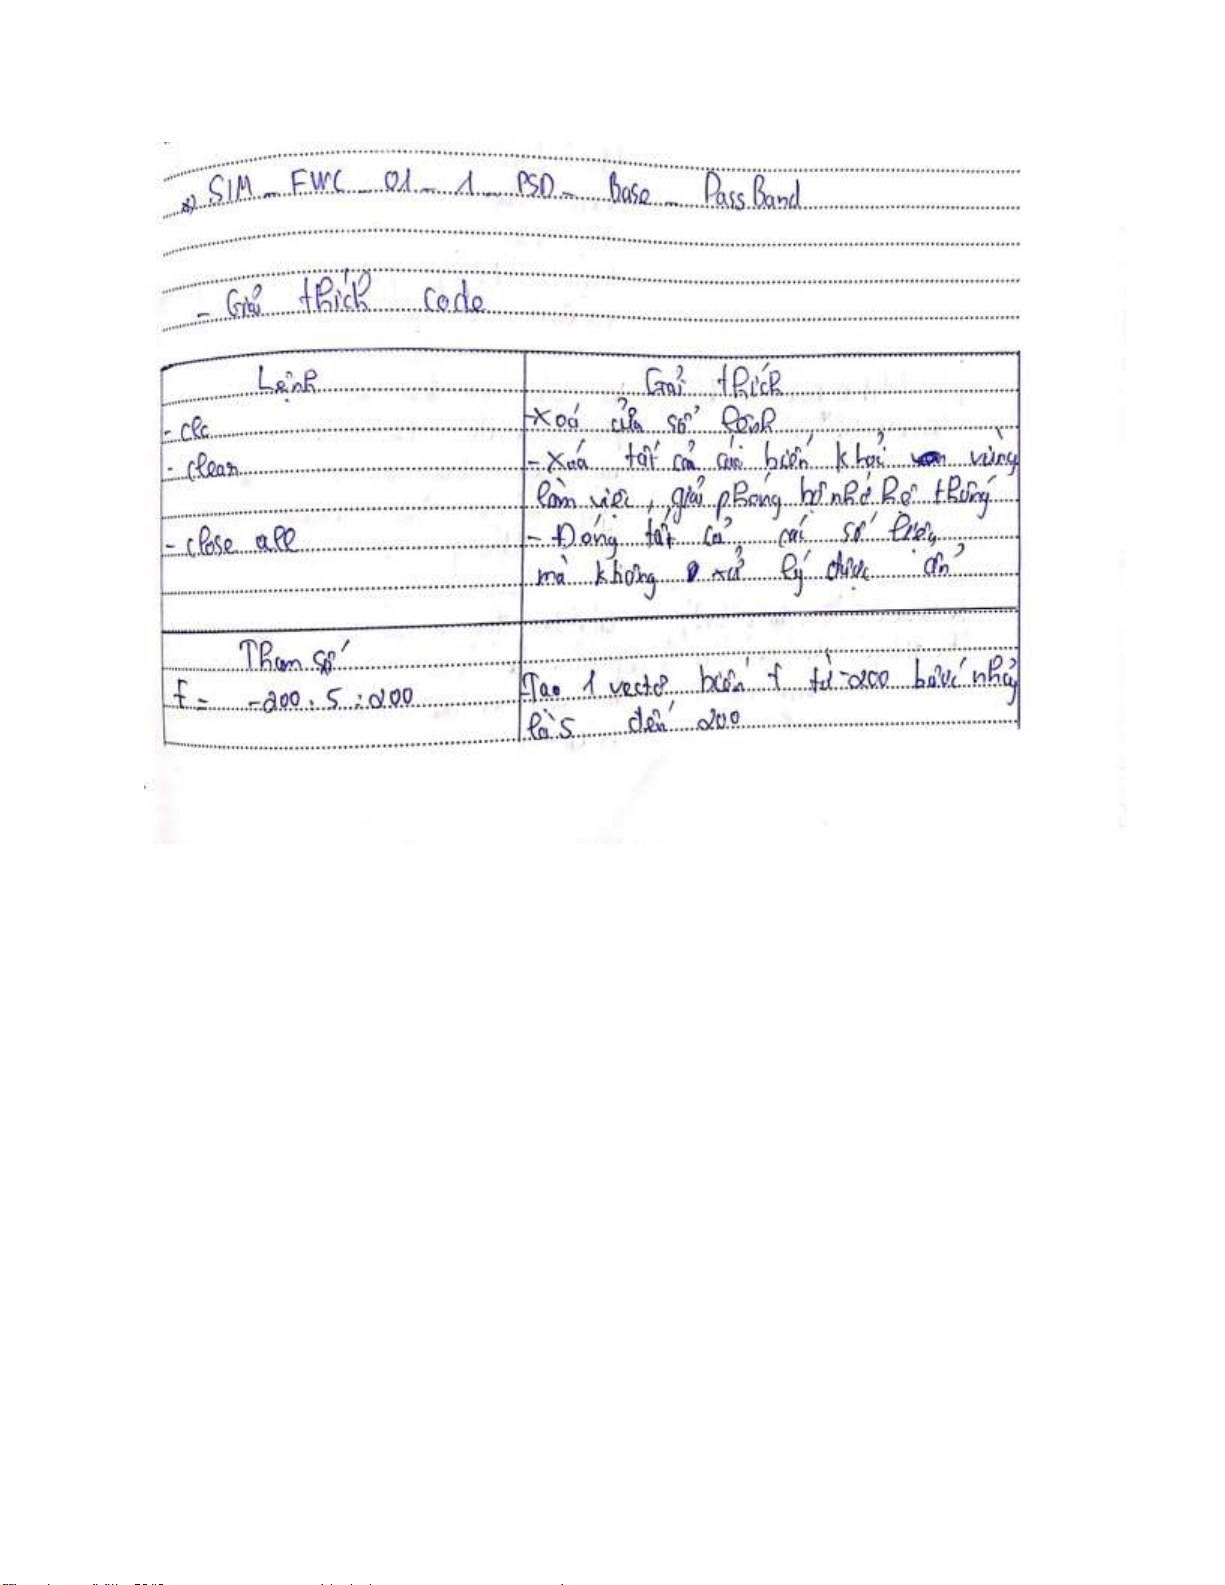 *) SIM_FWC_01_1_PSD_Base_PassBand
- Giải thích code
Lệnh
Giải thích
- clc
- Xoá cửa sổ lệnh
- clear
- Xoá tất cả các biến khỏi vùng
làm việc, giải phóng bộ nhớ hệ thống
- close all
- Đóng tất cả các số liệu
mà không xử lý được ẩn
Tham số
f = -200 : 5 : 200
Tạo 1 vectơ biến f từ -200 bước nhảy
là 5 đến 200